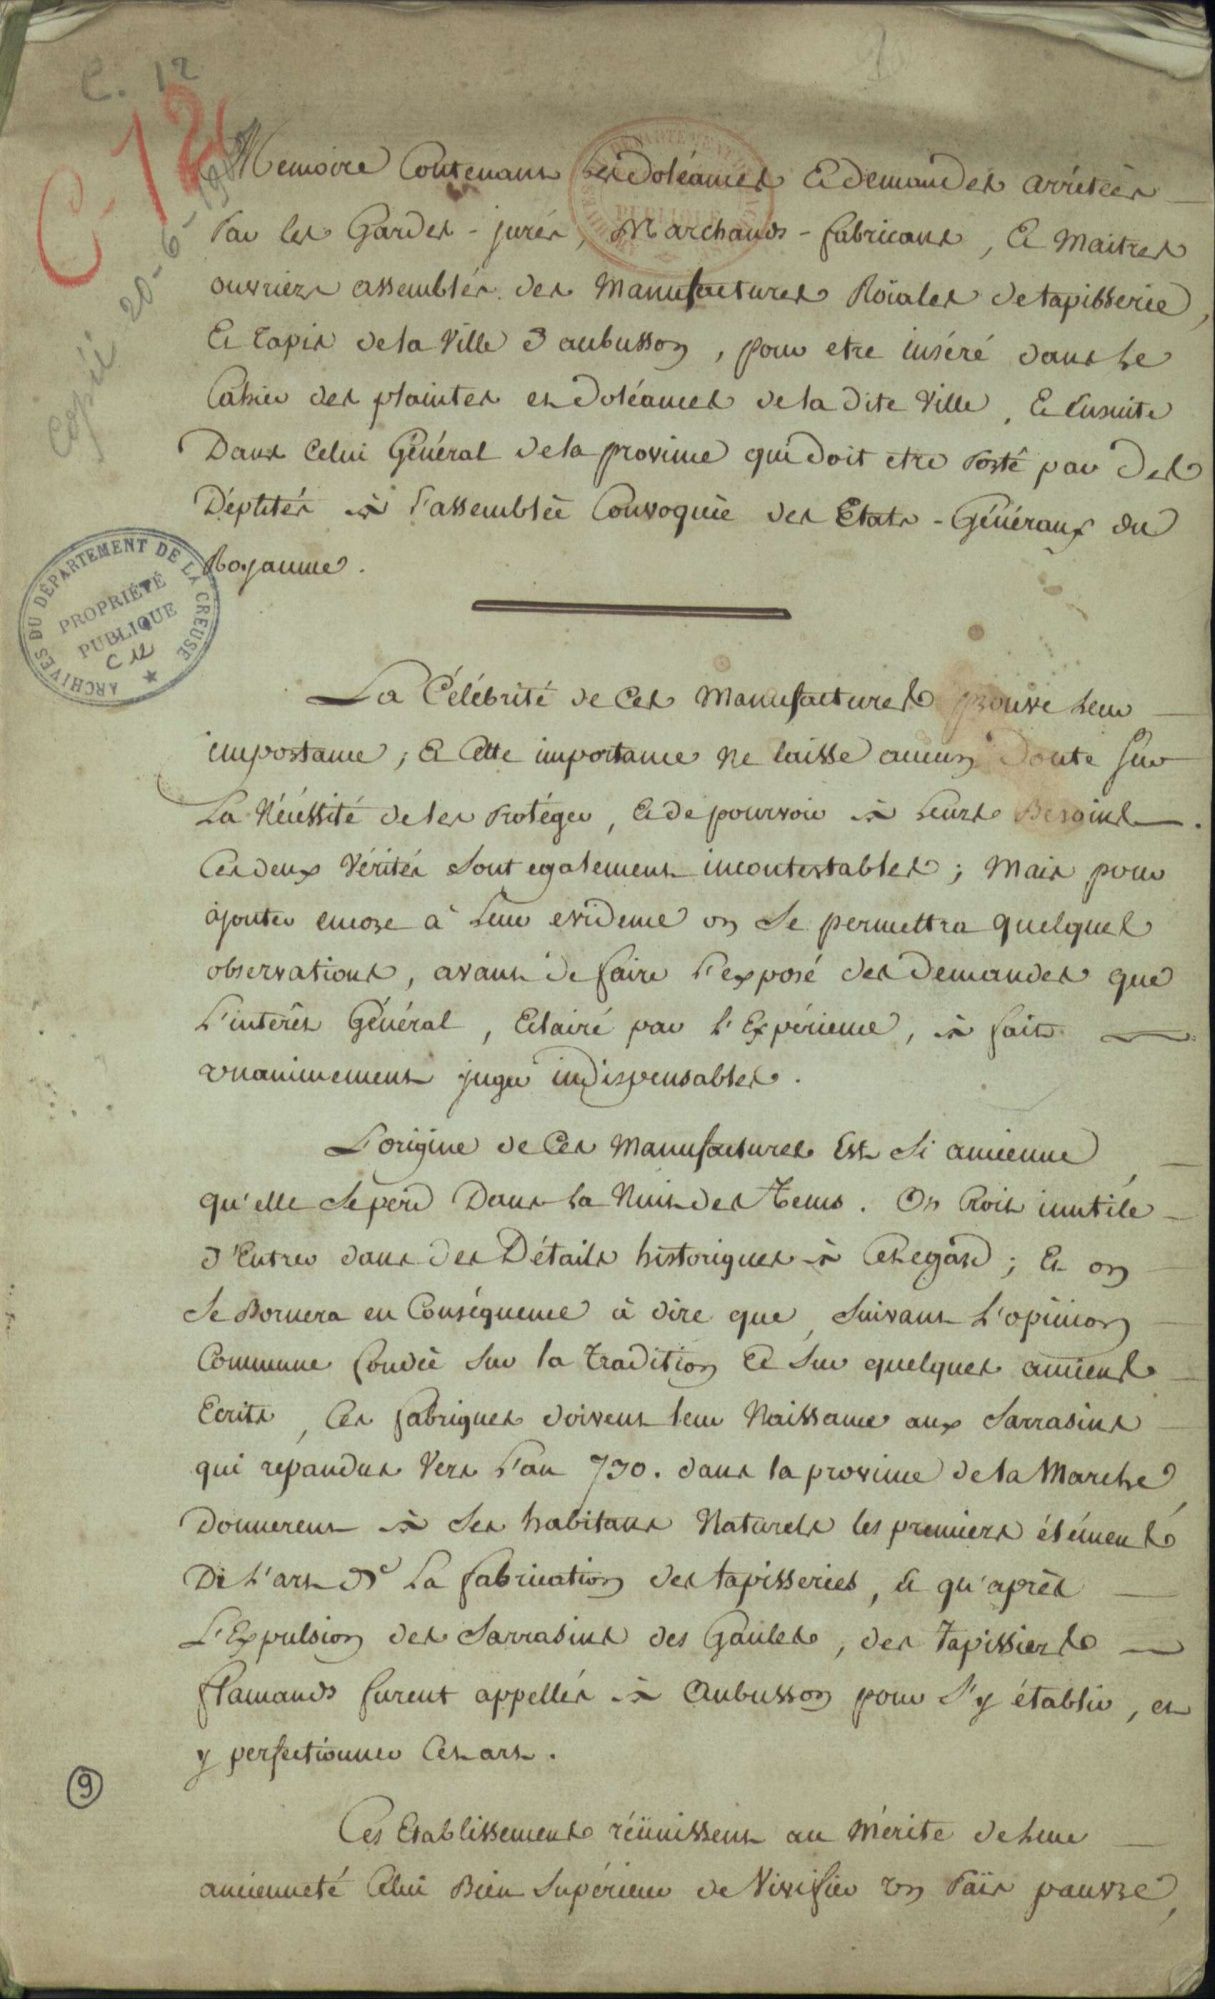 C. 12
C-12
Copié 20-6-19
Memoire Contenant les doléances et demandes arrêtées
Par les Gardes-jurés, Marchands-fabricans, et Maitres
ouvriers assemblés des Manufactures Roiales de tapisserie,
Et tapis de la Ville d'aubusson, pour etre inséré dans le
Cahier des plaintes et doléances de la dite Ville, et Ensuite
Dans Celui Général de la province qui doit etre Porté par des
Députés à l'assemblée Convoquée des Etats-Généraux du
Royaume.
ARCHIVES DU DÉPARTEMENT DE LA CREUSE
PROPRIÉTÉ
PUBLIQUE
C 12
La Célébrité de Ces Manufactures prouve leur
importance ; et Cette importance ne laisse aucun doute sur
La Nécéssité de les Protéger, et de pourvoir à leurs Besoins.
Ces deux Vérités sont egalement incontestables ; Mais pour
ajouter encore à leur evidence on se permettra quelques
observations, avant de faire l'exposé des demandes que
L'intérêt Général, Eclairé par l'Expérience, à fait
unanimement juger indispensables.
L'origine de Ces Manufactures Est si ancienne,
qu'elle se perd Dans la Nuit des Tems. On Croit inutile
d'Entrer dans des Détails historiques à Cet egard ; et on
se Bornera en Conséquence à dire que, suivant L'opinion
Commune fondée sur la tradition et sur quelques anciens
Ecrits, Ces fabriques doivent leur Naissance aux Sarrasins
qui répandus Vers l'an 730. dans la province de la Marche
Donnerent à ses habitans Naturels les premiers élémens
De L'art de La fabrication des tapisseries, et qu'après
L'Expulsion des Sarrasins des Gaules, des Tapissiers
flamands furent appellés à Aubusson pour s'y établir, et
y perfectionner Cet art.
9
Ces Etablissemens réünissent au Mérite de leur
ancienneté Celui Bien Supérieur de Vivifier un Païs pauvre,